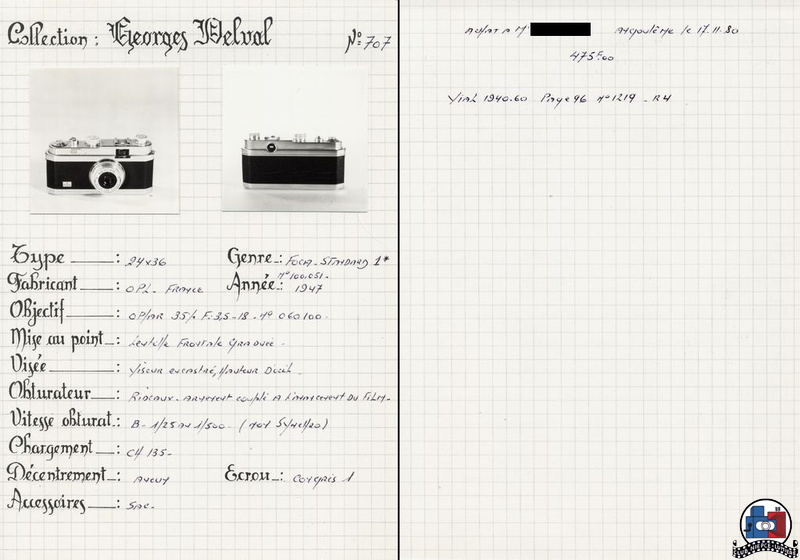 Collection : Georges Delval
Nº 707
Type : 24x36
Genre : FOCA - STANDARD 1*
Nº 100.051.
Fabricant : OPL - FRANCE
Année : 1947
Objectif : OPLAR 35/m F: 3,5 - 18 - Nº 060100 -
Mise au point : Lentille Frontale Graduée -
Visée : Viseur encastré, Hauteur D'oeil
Obturateur : Rideaux - Armement couplé à l'avancement du Film -
Vitesse obturat. : B - 1/25 au 1/500 - (Non Synchro)
Chargement : CH 135 -
Décentrement : Aucun
Ecrou : Congrès 1
Accessoires : Sac -
Achat à Mr
Angoulême le 17.11.80
475F00
Vial 1940.60 Page 96 Nº 1219 - R4